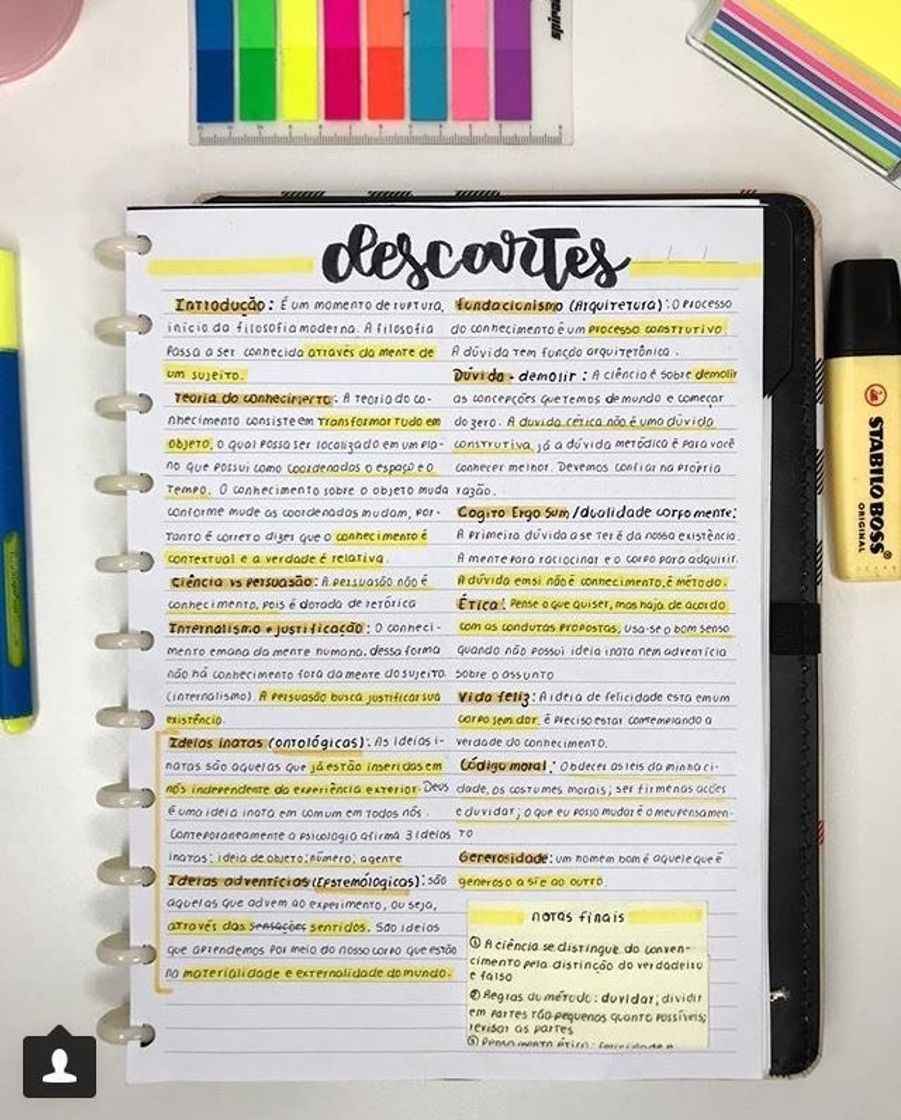 spiral
descartes
Introdução: É um momento de ruptura,
início da filosofia moderna. A filosofia
Passa a ser conhecida através da mente de
um sujeito.
Teoria do conhecimento: A Teoria do co-
nhecimento consiste em transformar tudo em
objeto, o qual possa ser localizado em um pla-
no que possui como coordenadas o espaço e o
Tempo. O conhecimento sobre o objeto muda
conforme mude as coordenadas mudam, por-
tanto é correto dizer que o conhecimento é
contextual e a verdade é relativa.
Ciência vs Persuasão: A persuasão não é
conhecimento, pois é dotada de retórica
Internalismo e justificação: O conheci-
mento emana da mente humana, dessa forma
não há conhecimento fora da mente do sujeito
(internalismo). A Persuasão busca justificar sua
existência.
Ideias inatas (ontológicas): As ideias i-
natas são aquelas que já estão inseridas em
nós independente da experiência exterior. Deus
é uma ideia inata em comum em todos nós.
Contemporaneamente a psicologia afirma 3 ideias
inatas: ideia de objeto; número; agente
Ideias adventícias (Epistemológicas): são
aquelas que advem ao experimento, ou seja,
através das sensações sentidos. São ideias
que aprendemos por meio do nosso corpo que estão
na materialidade e externalidade do mundo.
fundacionismo (Arquitetura): O Processo
do conhecimento é um processo construtivo.
A dúvida tem função arquitetônica.
Dúvida - demolir: A ciência é sobre demolir
as concepções que temos de mundo e começar
do zero. A dúvida cética não é uma dúvida
construtiva, já a dúvida metódica é para você
conhecer melhor. Devemos confiar na própria
razão.
Cogito Ergo Sum/dualidade corpo mente:
A primeira dúvida a se ter é da nossa existência.
A mente para raciocinar e o corpo para adquirir.
A dúvida em si não é conhecimento, é método.
Ética: Pense o que quiser, mas haja de acordo
com as condutas propostas, usa-se o bom senso
quando não possui ideia inata nem adventícia
sobre o assunto
Vida feliz: A ideia de felicidade esta em um
corpo sem dor, é preciso estar contemplando a
verdade do conhecimento.
Código moral: Obdecer as leis da minha ci-
dade, os costumes morais; ser firme nas ações
e duvidar; o que eu posso mudar é o meu pensamen-
to
Generosidade: um homem bom é aquele que é
generoso a si e ao outro.
notas finais
① A ciência se distingue do conven-
cimento pela distinção do verdadeiro
e falso
② Regras do método: duvidar; dividir
em partes tão pequenas quanto possíveis;
revisar as partes
③ Pensamento ético: felicidade e
STABILO BOSS
ORIGINAL